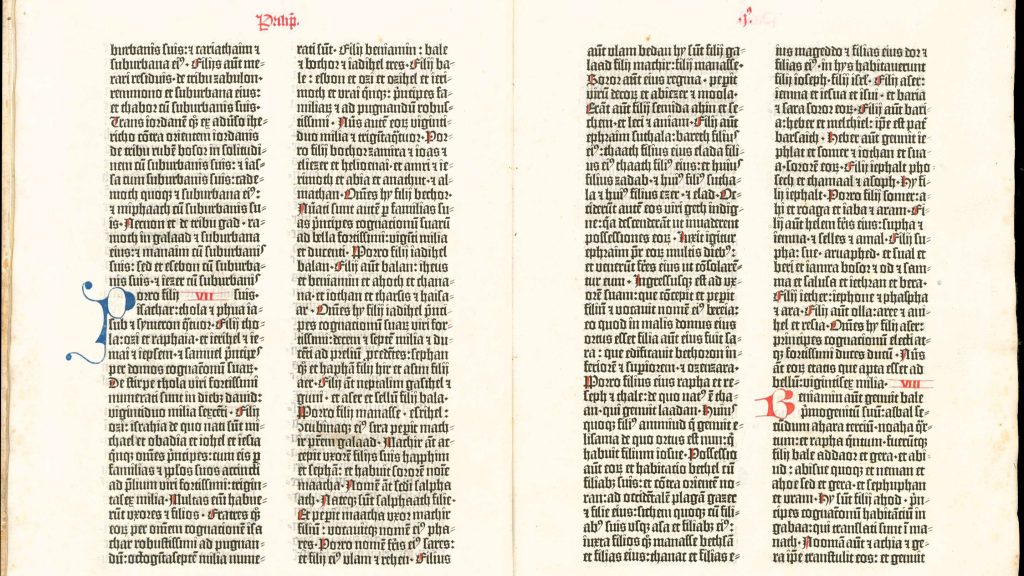 Paralip̄.
burbanis suis: ⁊ cariathaim ⁊
suburbana ei⁹. Filijs aūt me-
rari residuis de tribu zabulon
remmono et suburbana eius:
et thabor cū suburbanis suis.
Trans iordanē q̄ꝫ ex adūso ihe-
richo cōtra orientem iordanis
de tribu rubē bosor in solitudi-
nem cū suburbanis suis: ⁊ ias-
sa cum suburbanis suis: cade-
moth quoqꝫ ⁊ suburbana ei⁹:
⁊ miphaath cū suburbanis su-
is. Necnon et de tribu gad · ra-
moth in galaad ⁊ suburbana
eius: ⁊ manaim cū suburbanis
suis: sed et esebon cū suburba-
nis suis · ⁊ iezer cū suburbanis
Porro filij VII suis.
ysachar: thola ⁊ phua ia-
sub ⁊ symeron q̄tuor. Filij tho-
la: ozi et raphaia · et ierihel ⁊ ie-
mai ⁊ iepsem · ⁊ samuel p̄ncipes
per domos cognationū suaꝝ.
De stirpe thola viri fortissimi
numerati sunt in diebꝫ dauid:
vigintiduo milia sexcēti. Filij
ozi: israhia de quo nati sūt mi-
chael et obadia et iohel et iesia
quīqꝫ om̄es p̄ncipes: cum eis p
familias ⁊ pp̄los suos accincti
ad p̄lium viri fortissimi: trigin-
tasex milia. Multas em̄ habue-
rūt vxores ⁊ filios. Fratres q̄ꝫ
eoꝝ per omnem cognationē ysa-
char robustissimi ad pugnan-
dū: octogītaseptē milia nume-
rati sūt. Filij beniamin: bale
⁊ bochor ⁊ iadihel tres. Filij ba-
le: esbon et ozi et ozihel et ieri-
moth et vrai q̄nqꝫ: p̄ncipes fa-
miliaꝝ ⁊ ad pugnandū robus-
tissimi. Nūs autē eoꝝ viginti-
duo milia ⁊ trigītaq̄tuor. Por-
ro filij bochor: zamira ⁊ ioas ⁊
eliezer et helioenai · et amri ⁊ ie-
rimoth et abia et anathut · ⁊ al-
mathan. Om̄es hij filij bechor.
Nūati sunt autē p familias su-
as p̄ncipes cognationū suarū
ad bella fortissimi: vigīti milia
et ducenti. Porro filij iadihel
balan. Filij autē balan: iheus
et beniamin et ahoth et chana-
na · et iothan et tharsis ⁊ haisa-
ar. Om̄es hij filij iadihel p̄nci-
pes cognationū suaꝝ viri for-
tissimi: decem ⁊ septē milia ⁊ du-
cēti ad preliū p̄cedētes: sephan
q̄ꝫ et haphā filij hir et asim filij
aer. Filij aūt neptalim: gasihel ⁊
guni · et aser et sellū filij bala.
Porro filij manasse · esrihel:
ꝯcubinaqꝫ ei⁹ sira pepit mach-
ir prēm galaad. Machir aūt ac-
cepit vxorē filijs suis happhim
et sephā: et habuit sororē noīe
maacha. Nomē aūt sēdi salpha
ath. Nateqꝫ sūt salphaath filie.
Et pepit maacha vxor machir
filiū: vocauitqꝫ nomē ei⁹ pha-
res. Porro nomē fr̄is ei⁹ sares:
et filij ei⁹ vlam ⁊ rechen. Filius
aūt vlam bedan: hij sūt filij ga-
laad filij machir filij manasse.
Soror aūt eius regina · pepit
virū decoꝝ et abiezer ⁊ moola.
Erāt aūt filij semida ahin et se-
chem · et leci ⁊ aniam. Filij aūt
ephraim suthala: bareth filius
ei⁹: thaath filius eius elada fili-
us ei⁹ thaath fili⁹ eius: et huius
filius zadab · ⁊ hui⁹ fili⁹ sutha-
la ⁊ hui⁹ filius ezer · ⁊ elad. Oc-
ciderūt aūt eos viri geth indige-
ne: q̄a descenderāt ut inuaderent
possessiones eoꝝ. Luxit igitur
ephraim pr̄ eoꝝ multis dieb⁹:
et venerūt fr̄es ei⁹ ut cōsolarē-
tur eum. Ingressusqꝫ est ad vx-
orē suam: que cōcepit et pepit
filiū ⁊ vocauit nomē ei⁹ beria:
eo quod in malis domus eius
ortus esset filia aūt eius fuit sa-
ra: que edificauit bethoron in-
feriorē ⁊ supiorem · et ozenzara.
Porro filius eius rapha et re-
seph ⁊ thale: de quo nat⁹ ē tha-
an · qui genuit laadan. Huius
quoqꝫ filius ammiud q̄ genuit e-
lisama de quo ortus est nun: q̄
habuit filium iosue. Possessio
aūt eoꝝ et habitatio bethel cū
filiabꝫ suis: et cōtra oriētē no-
ran: ad occidētalē plagā gazer
et filie eius: sichem quoqꝫ cū fili-
ab⁹ suis usqꝫ asa et filiabꝫ ei⁹:
iuxta filios q̄ꝫ manasse bethsan
et filias eius: thanac et filias e-
ius mageddo ⁊ filias eius dor ⁊
filias ei⁹. in hijs habitauerunt
filij ioseph · filij isrl̄. Filij aser:
iemna et iesua et isui · et baria
⁊ sara soror eoꝝ. Filij aūt bari-
a: heber et melchiel: ip̄e est pat̄
barsaith. Heber aūt genuit ie-
phlat et somer ⁊ iothan et sua-
a · sororē eoꝝ. Filij iephalt pho-
sech et chamaal ⁊ asoph. Hij fi-
lij iephalt. Porro filij somer: a-
hi et roaga et iaba ⁊ aram. Fi-
lij aūt helem fr̄is eius: supha ⁊
iemna · ⁊ selles ⁊ amal. Filij su-
pha: sue · aruaphed · et sual et
beri et iamra bosor ⁊ od ⁊ sam-
ma et salusa et iethran et bera.
Filij iether: iephone ⁊ phaspha
⁊ ara. Filij aūt olla: aree ⁊ ani-
hel et resia. Om̄es hij filij aser:
principes cognationū electi at-
qꝫ fortissimi duces ducū. Nūs
aūt eoꝝ etatis que apta esset ad
bellū: vigintisex milia. VIII
Beniamin aūt genuit bale
p̄mogenitū suū: asbal se-
cūdum ahara terciū · noaha q̄r-
tum: et rapha q̄ntum · fuerūtqꝫ
filij bale addaor et gera · et abi-
ud: abisue quoqꝫ et neman et
ahoe sed et gera · et sephuphan
et vram. Hij sūt filij ahod · p̄n-
cipes cognationū habitātiū in
gabaa: qui translati sunt ī ma-
nath. Noomā aūt ⁊ achia ⁊ ge-
ra ip̄e trāstulit eos: et genuit